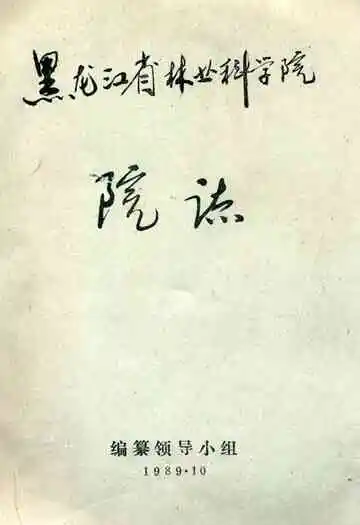 黑龙江省林业科学院
院志
编纂领导小组
1989·10